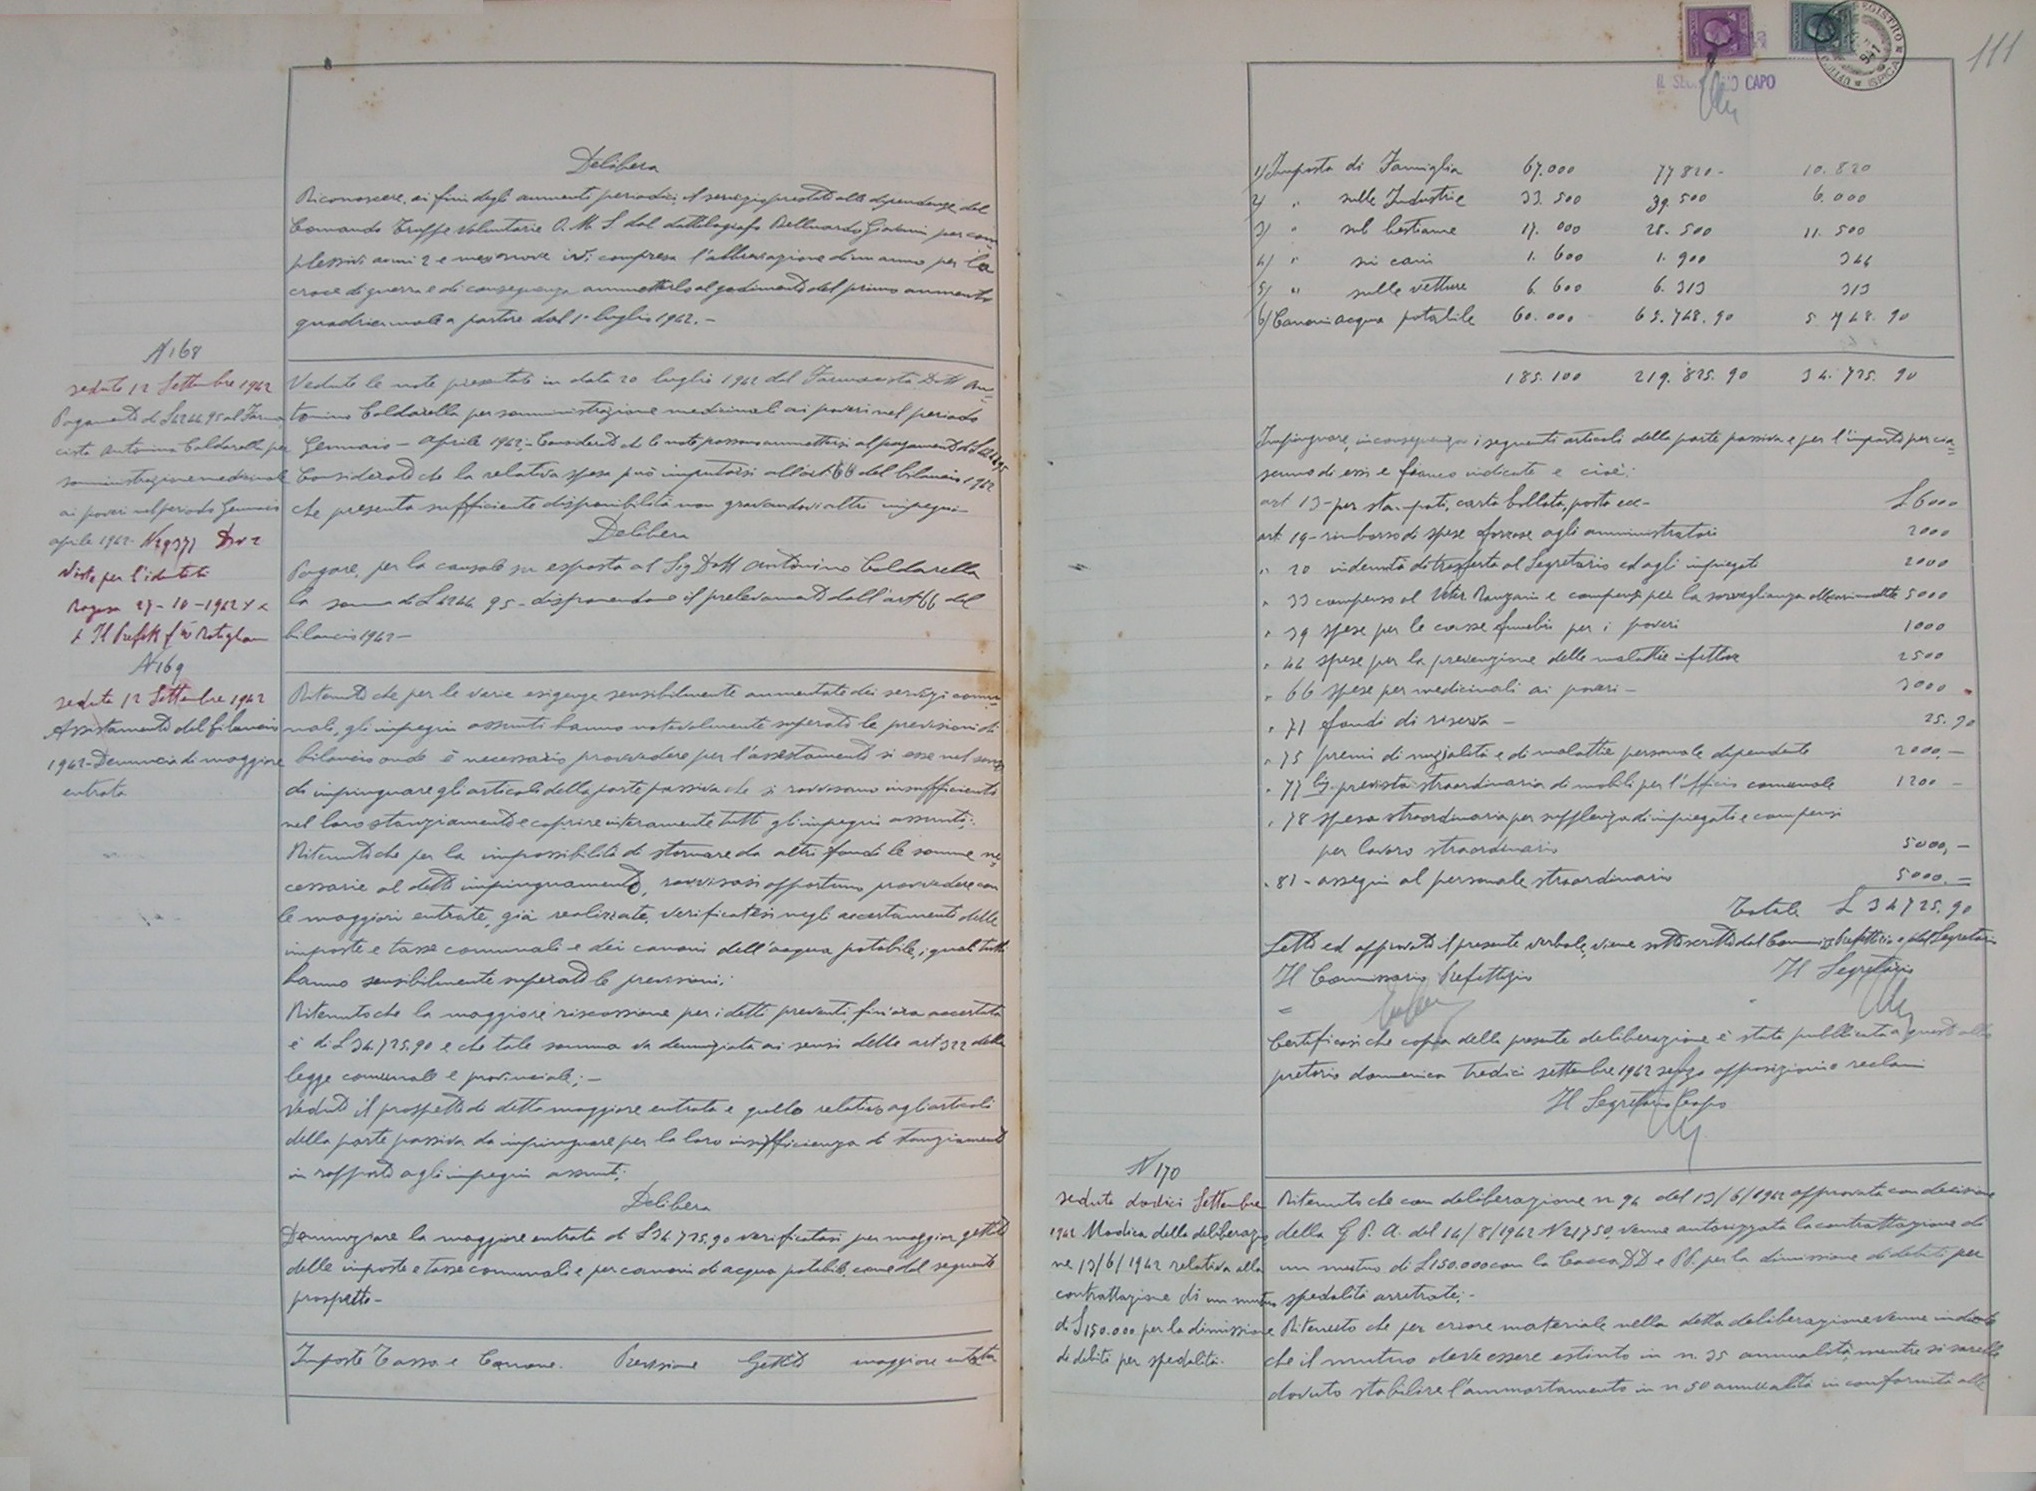 Delibera
Riconoscere, ai fini degli aumenti periodici, il servizio prestato alle dipendenze del
Comando Truppe Volontarie O.M.S. dal dattilografo Belluardo Giovanni per com=
plessivi anni 2 e mesi nove ivi compresa l'abbreviazione di un anno per la
croce di guerra e di conseguenza ammetterlo al godimento del primo aumento
quadriennale a partire dal 1° luglio 1942.-
N 168
seduta 12 Settembre 1942
Pagamento di £4244,95 al Farma
cista Antonino Caldarella per
somministrazione medicinali
ai poveri nel periodo Gennaio
aprile 1942-
N 29377 Div 2
Visto per l'identità
Ragusa 27-10-1942 XX
Il Prefetto
Vedute le note presentate in data 20 luglio 1942 dal Farmacista Dott An=
tonino Caldarella per somministrazione medicinali ai poveri nel periodo
Gennaio - Aprile 1942;- Considerato che le note possono ammettersi al pagamento di £4244,95
Considerato che la relativa spesa può imputarsi all'art 66 del bilancio 1942
che presenta sufficiente disponibilità non gravandovi altri impegni-
Delibera
Pagare, per la causale su esposta al Sig Dott Antonino Caldarella
la somma di £ 4244,95 - disponendone il prelevamento dall'art 66 del
bilancio 1942-
N 169
seduta 12 Settembre 1942
Assestamento del bilancio
1942-Denuncia di maggiore
entrata
Ritenuto che per le varie esigenze sensibilmente aumentate dei servizi comu=
nali, gli impegni assunti hanno notevolmente superato le previsioni di
bilancio onde è necessario provvedere per l'assestamento di esse nel senso
di impinguare gli articoli della parte passiva che si ravvisano insufficienti
nel loro stanziamento e coprire interamente tutti gli impegni assunti;
Ritenuto che per la impossibilità di stornare da altri fondi le somme ne=
cessarie al detto impinguamento, ravvisasi opportuno provvedere con
le maggiori entrate, già realizzate, verificatesi negli accertamenti delle
imposte e tasse comunali e dei canoni dell'acqua potabile, i quali tutti
hanno sensibilmente superato le previsioni;
Ritenuto che la maggiore riscossione per i detti preventi, fin'ora accertata
è di £ 34.725,90 e che tale somma va denunziata ai sensi dello art 322 della
legge comunale e provinciale;-
Veduto il prospetto di detta maggiore entrata e quello relativo agli articoli
della parte passiva da impinguare per la loro insufficienza di stanziamento
in rapporto agli impegni assunti;
Delibera
Denunziare la maggiore entrata di £34.725,90 verificatasi per maggior gettito
delle imposte e tasse comunali e per canoni di acqua potabile come dal seguente
prospetto-
Imposte Tasse e Canone. Previsione Gettito maggiore entrata
111
IL SEGRETARIO CAPO
1) Imposta di Famiglia 67.000 77820- 10.820
2) " sulle Industrie 33.500 39.500 6.000
3) " sul bestiame 17.000 28.500 11.500
4) " sui cani 1.600 1.900 344
5) " sulle vetture 6.600 6.313 313
6) Canoni acqua potabile 60.000 65.748.90 5.748.90
185.100 219.825.90 34.725.90
Impinguare, in conseguenza i seguenti articoli della parte passiva e per l'importo per cia=
scuno di essi e fianco indicate e cioè:
art 13-per stampati, carta bollata, posta ecc- £6000
art 19-rimborso di spese forzose agli amministratori 2000
" 20 indennità di trasferta al Segretario ed agli impiegati 2000
" 33 compenso al Veter e compensi per la sorveglianza 5000
" 39 spese per le casse funebri per i poveri 1000
" 44 spese per la prevenzione delle malattie infettive 2500
" 66 spese per medicinali ai poveri- 3000
" 71 fondi di riserva- 25.90
" 75 premi di nuzialità e di malattie personale dipendente 2000,-
" 77 bis provvista straordinaria di mobili per l'ufficio comunale 1200-
" 78 spesa straordinaria per supplenza di impiegati e compensi
per lavoro straordinario 5000,-
" 81-assegni al personale straordinario 5000.-
Totale £ 34725.90
Letto ed approvato il presente verbale, viene sottoscritto dal Commiss. Prefettizio e dal Segretario
Il Commissario Prefettizio Il Segretario
Certificasi che copia della presente deliberazione è stata pubblicata a quest'albo
pretorio domenica tredici settembre 1942 senza opposizioni o reclami
Il Segretario Capo
N 170
seduta dodici Settembre
1942 Modica della deliberazio
ne 13/6/1942 relativa alla
contrattazione di un mutuo
di £150.000 per la dimissione
di debiti per spedalità.
Ritenuto che con deliberazione n 94 del 13/6/1942 approvata con decisione
della G.P.A. del 14/8/1942 N 21750, venne autorizzata la contrattazione di
un mutuo di £150.000 con la Cassa DD e PP. per la dimissione di debiti per
spedalità arretrate;-
Ritenuto che per errore materiale nella detta deliberazione venne indicato
che il mutuo deve essere estinto in n. 35 annualità, mentre si sarebbe
dovuto stabilire l'ammortamento in n 50 annualità in conformità alle